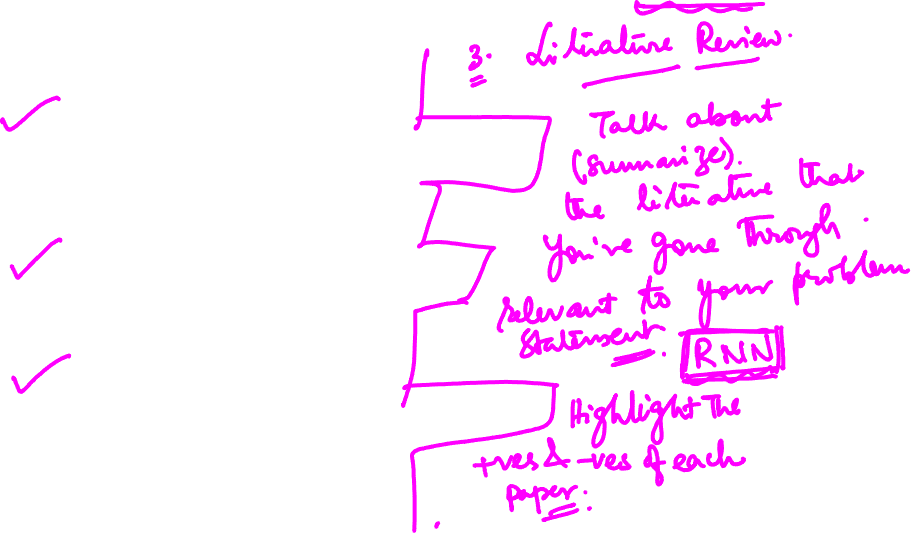 3. Literature Review.
Talk about
(summarize).
the literature that
you've gone through.
relevant to your problem
statement. RNN
Highlight the
+ves & -ves of each
paper.